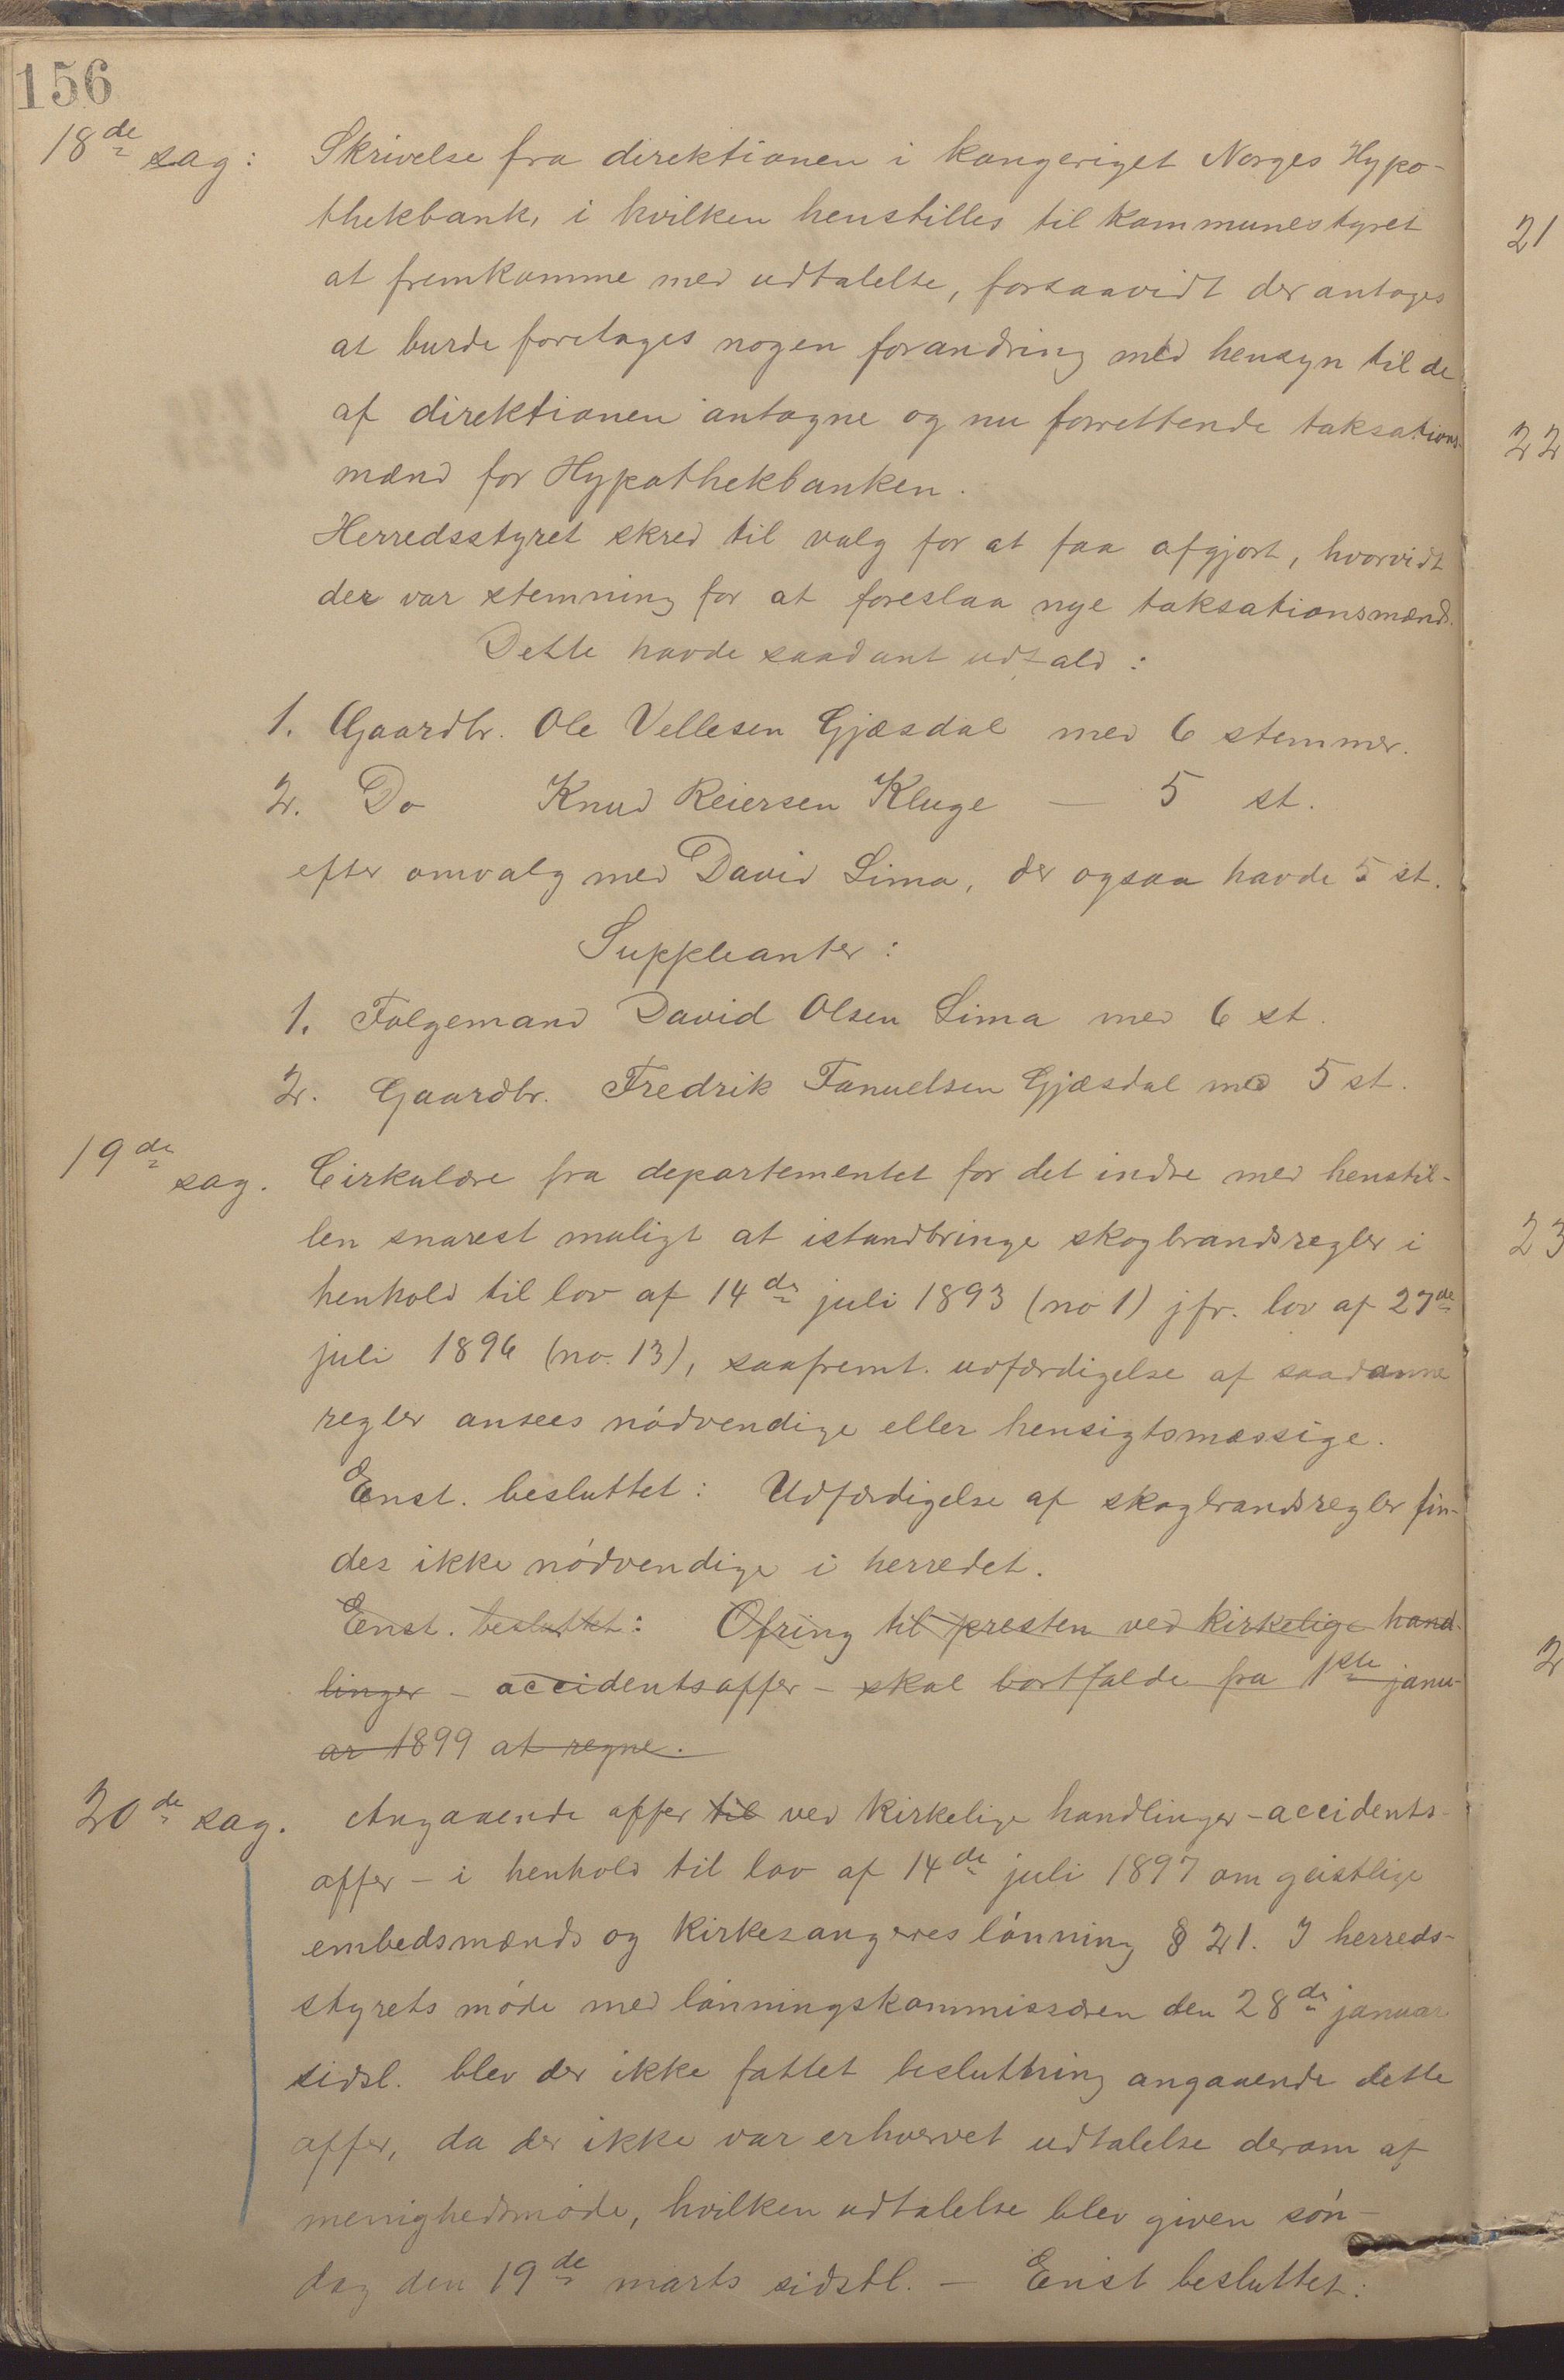 156
18de sag: Skrivelse fra direktionen i kongeriget Norges Hypo-
thekbank, i hvilken henstilles til kommunestyret
at fremkomme med udtalelse, forsaavidt der antages
at burde foretages nogen forandring med hensyn til de
af direktionen antagne og nu forrettende taksations-
mænd for Hypothekbanken.
Herredsstyret skred til valg for at faa afgjort, hvorvidt
der var stemning for at foreslaa nye taksationsmænd.
Dette havde saadant udfald:
1. Gaardbr. Ole Vellesen Gjæsdal med 6 stemmer.
2. Do Knud Reiersen Kluge — 5 st.
efter omvalg med David Lima, der ogsaa havde 5 st.
Suppleanter:
1. Folgemand David Olsen Lima med 6 st.
2. Gaardbr. Fredrik Fanuelsen Gjæsdal med 5 st.
19de sag. Cirkulære fra departementet for det indre med henstil-
len snarest muligt at istandbringe skogbrandsregler i
henhold til lov af 14de juli 1893 (no 1) jfr. lov af 27de
juli 1896 (no. 13), saafremt udfærdigelse af saadanne
regler ansees nødvendige eller hensigtsmæssige.
Enst. besluttet: Udfærdigelse af skogbrandsregler fin-
des ikke nødvendige i herredet.
Enst. besluttet: Ofring til presten ved kirkelige hand-
linger - accidentsoffer - skal bortfalde fra 1ste janu-
ar 1899 at regne.
20de sag. Angaaende offer til ved kirkelige handlinger - accidents-
offer - i henhold til lov af 14de juli 1897 om geistlige
embedsmænds og kirkesangeres lønning § 21. I herreds-
styrets møde med lønningskommissæren den 28de januar
sidsl. blev der ikke fattet beslutning angaaende dette
offer, da der ikke var erhvervet udtalelse derom af
menighedsmøde, hvilken udtalelse blev given søn-
dag den 19de marts sidstl. — Enst besluttet:
21
22
23
2